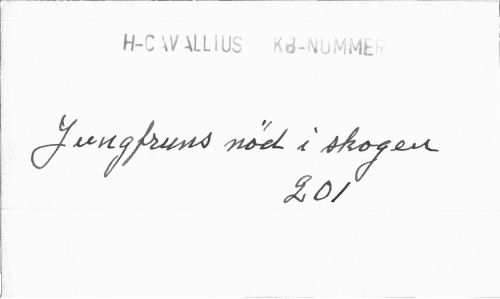 H-CAVALLIUS KB-NUMMER
Jungfruns nöd i skogen
201